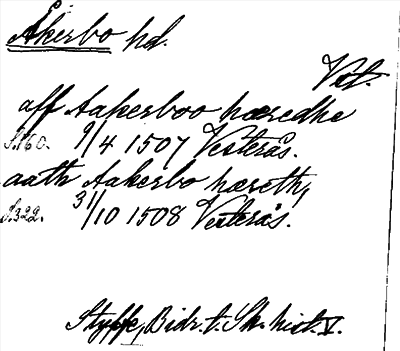 Åkerbo hd.
Vstm.
aff Aakerboo hæredhe
S.160. 9/4 1507 Vesterås.
aath Aakerbo hæreth,
S.322. 31/10 1508 Vesterås.
Styffe, Bidr. t. Sk. hist. V.